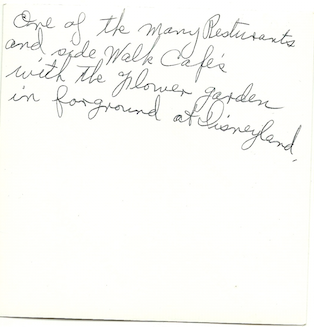 One of the many Resturants
and side Walk Cafe's
with the flower garden
in forground at Disneyland.